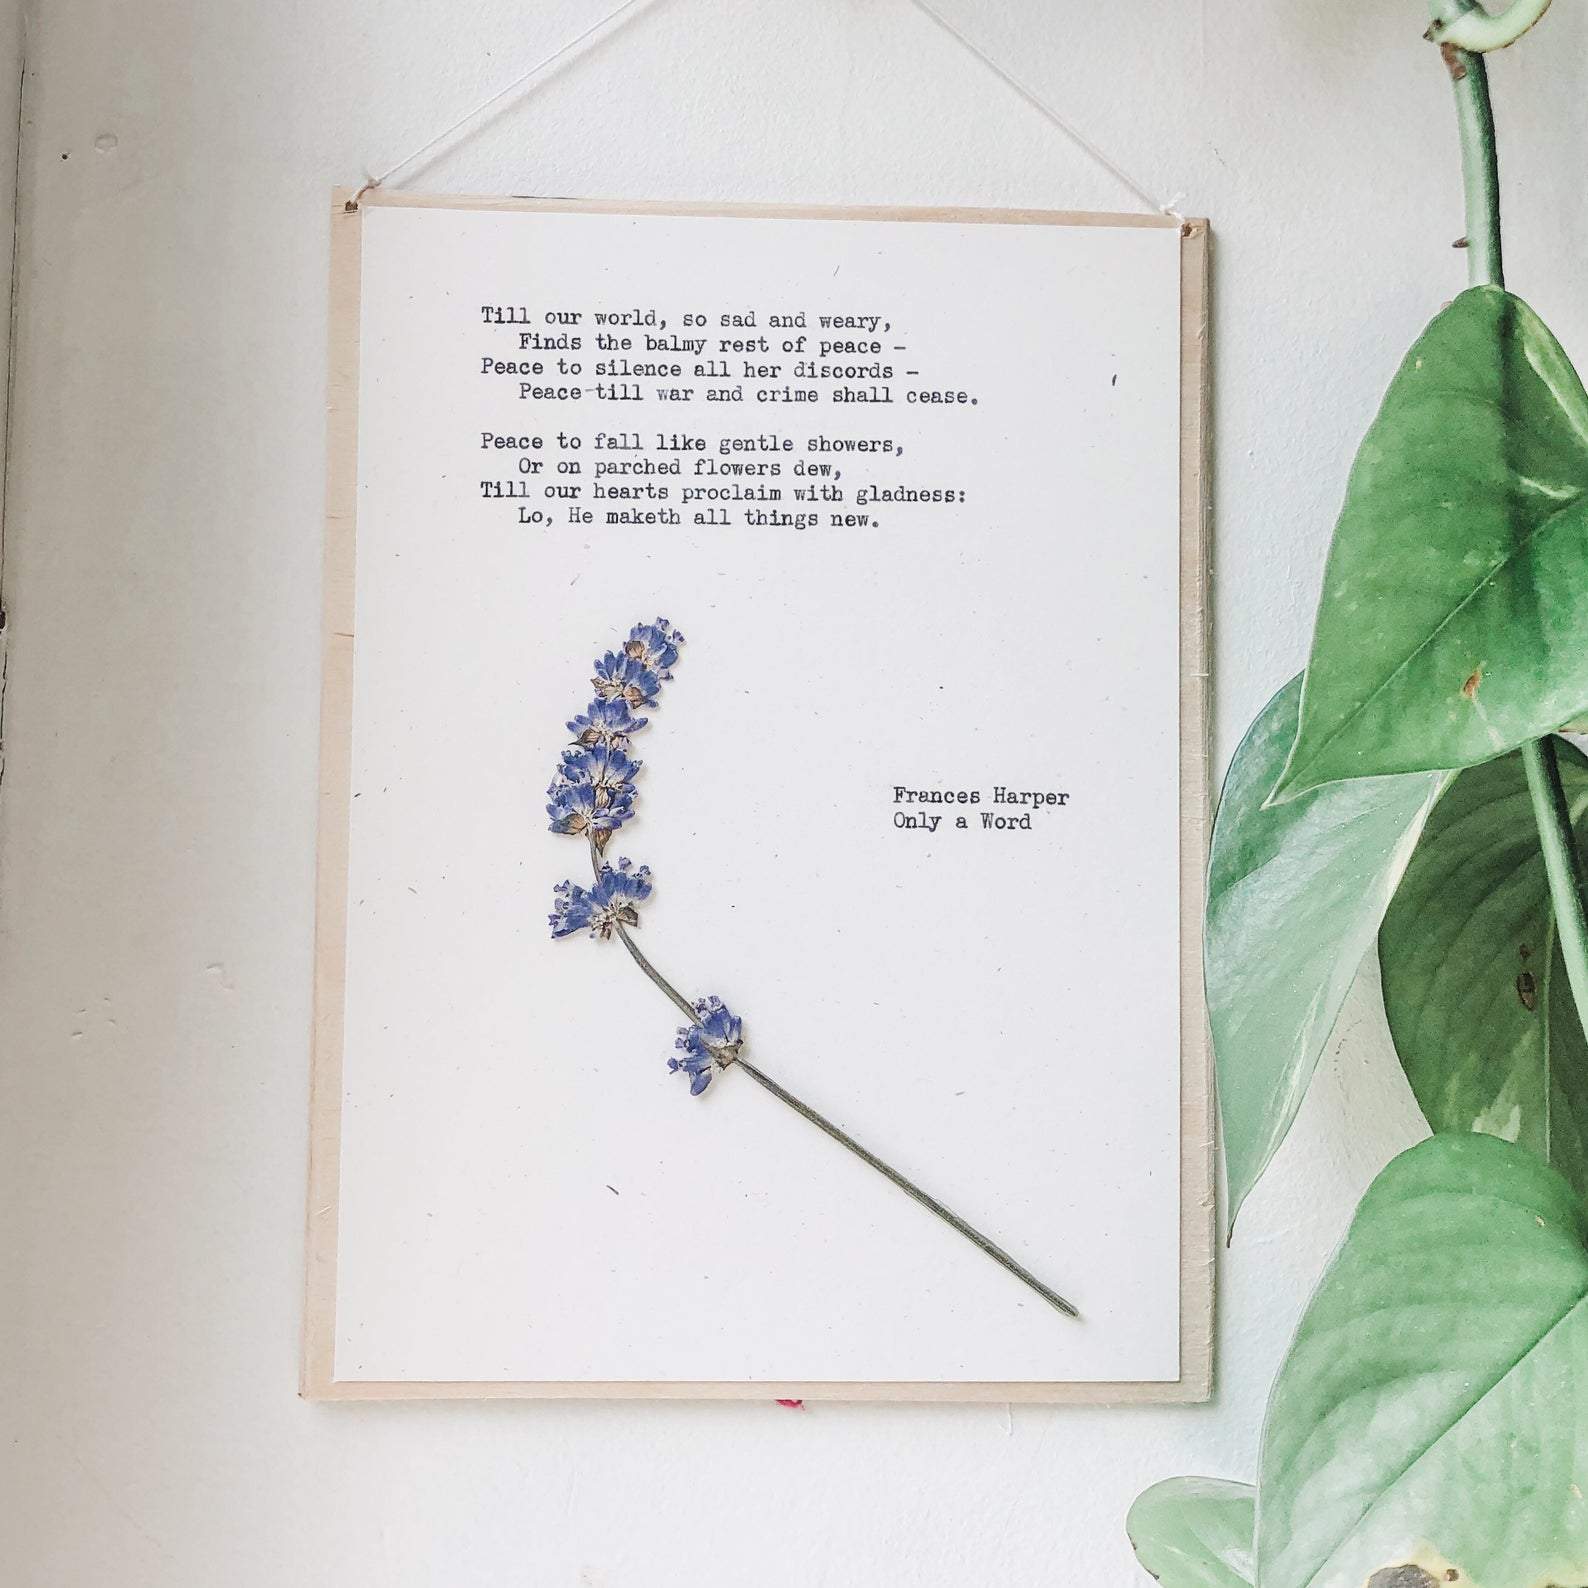 Till our world, so sad and weary,
Finds the balmy rest of peace –
Peace to silence all her discords –
Peace till war and crime shall cease.
Peace to fall like gentle showers,
Or on parched flowers dew,
Till our hearts proclaim with gladness:
Lo, He maketh all things new.
Frances Harper
Only a Word